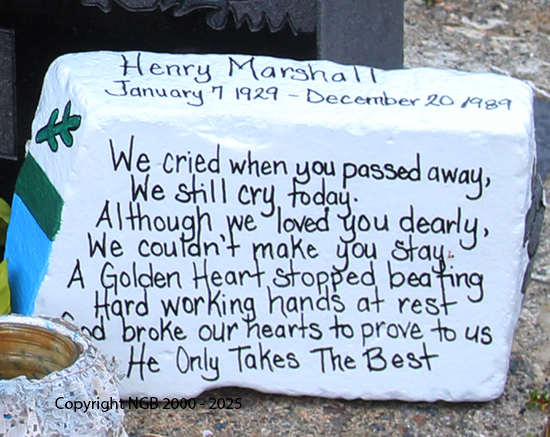 Henry Marshall
January 7 1929 - December 20 1989
We cried when you passed away,
We still cry today.
Although we loved you dearly,
We couldn't make you stay.
A Golden Heart stopped beating
Hard working hands at rest
God broke our hearts to prove to us
He Only Takes The Best
Copyright NGB 2000 - 2025